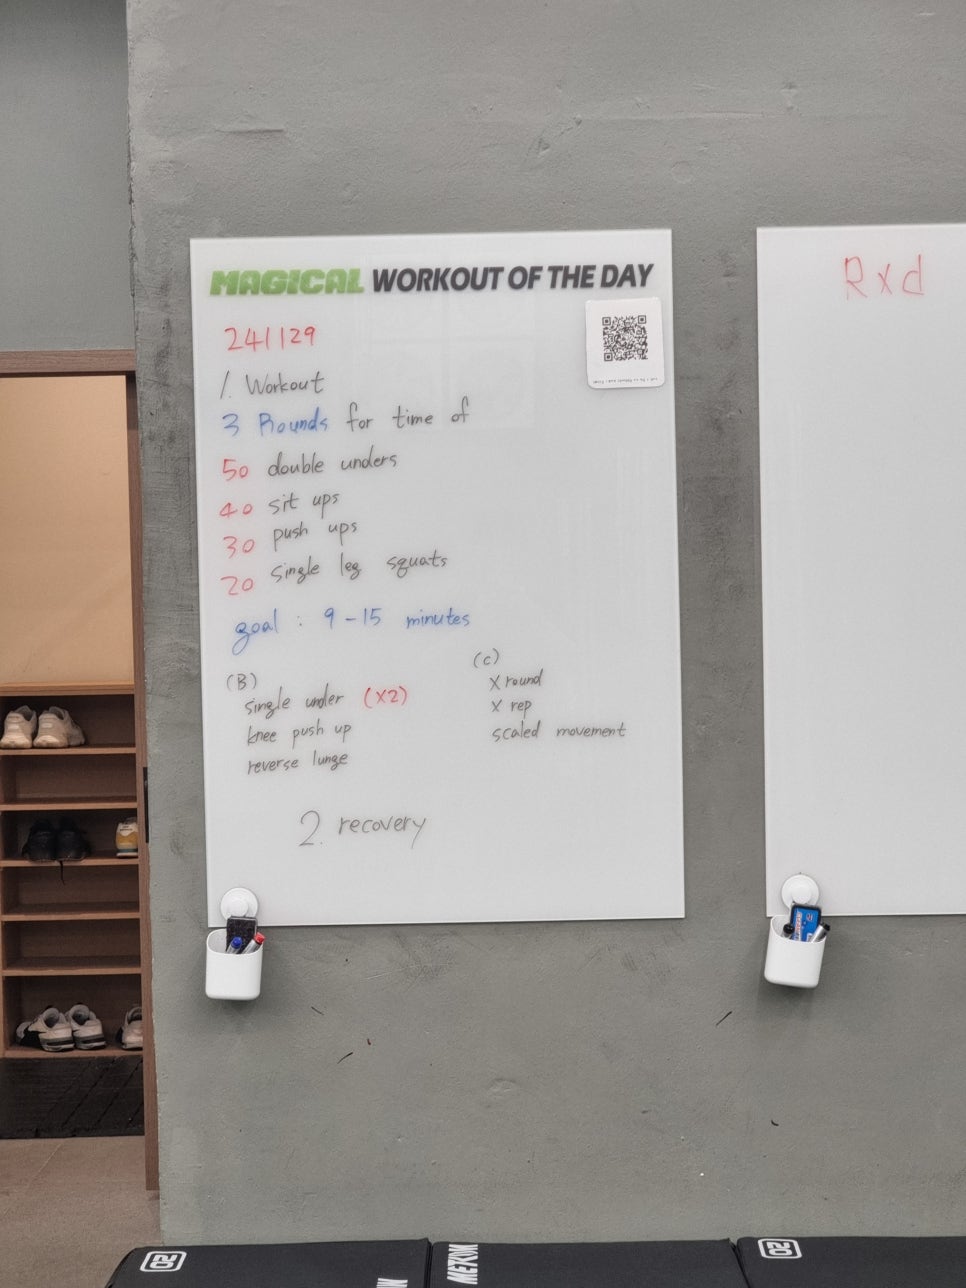 MAGICAL WORKOUT OF THE DAY
241129
1. Workout
3 Rounds for time of
50 double unders
40 sit ups
30 push ups
20 single leg squats
goal : 9-15 minutes
(B)
single under (x2)
knee push up
reverse lunge
(C)
X round
X rep
scaled movement
2. recovery
Rxd
20
20